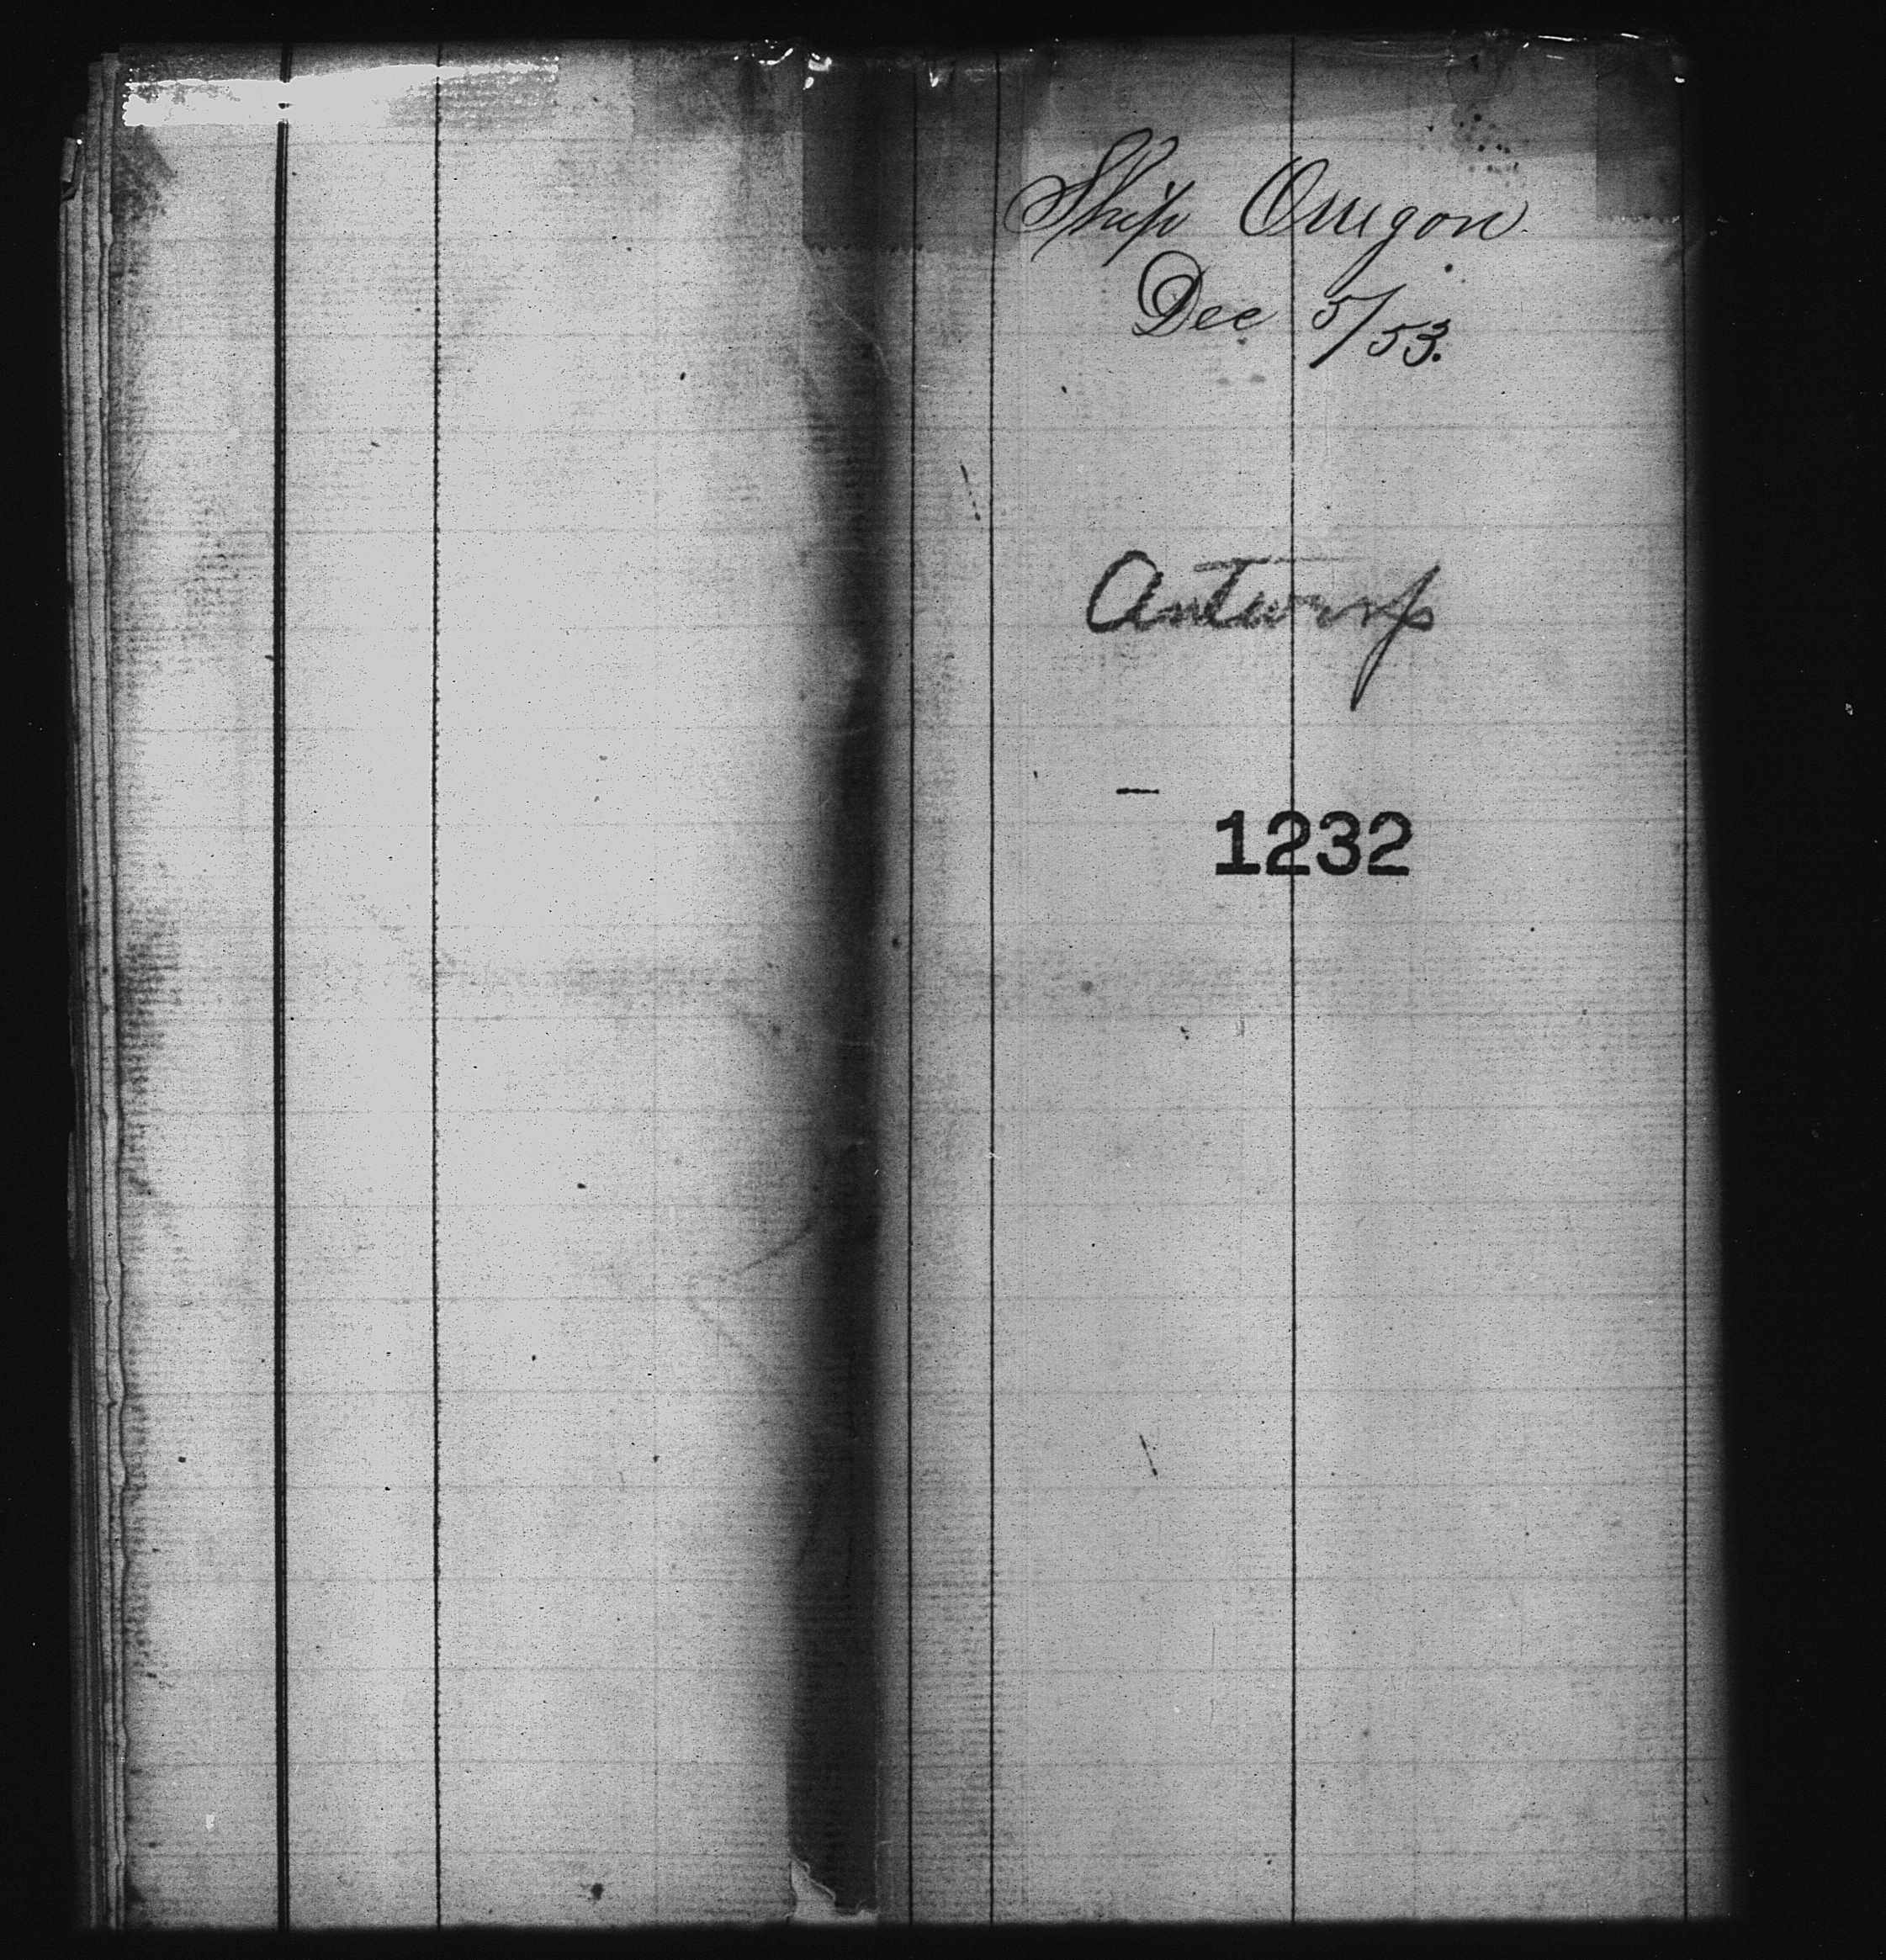 Ship Oregon
Dec 5/53.
Antwerp
1232